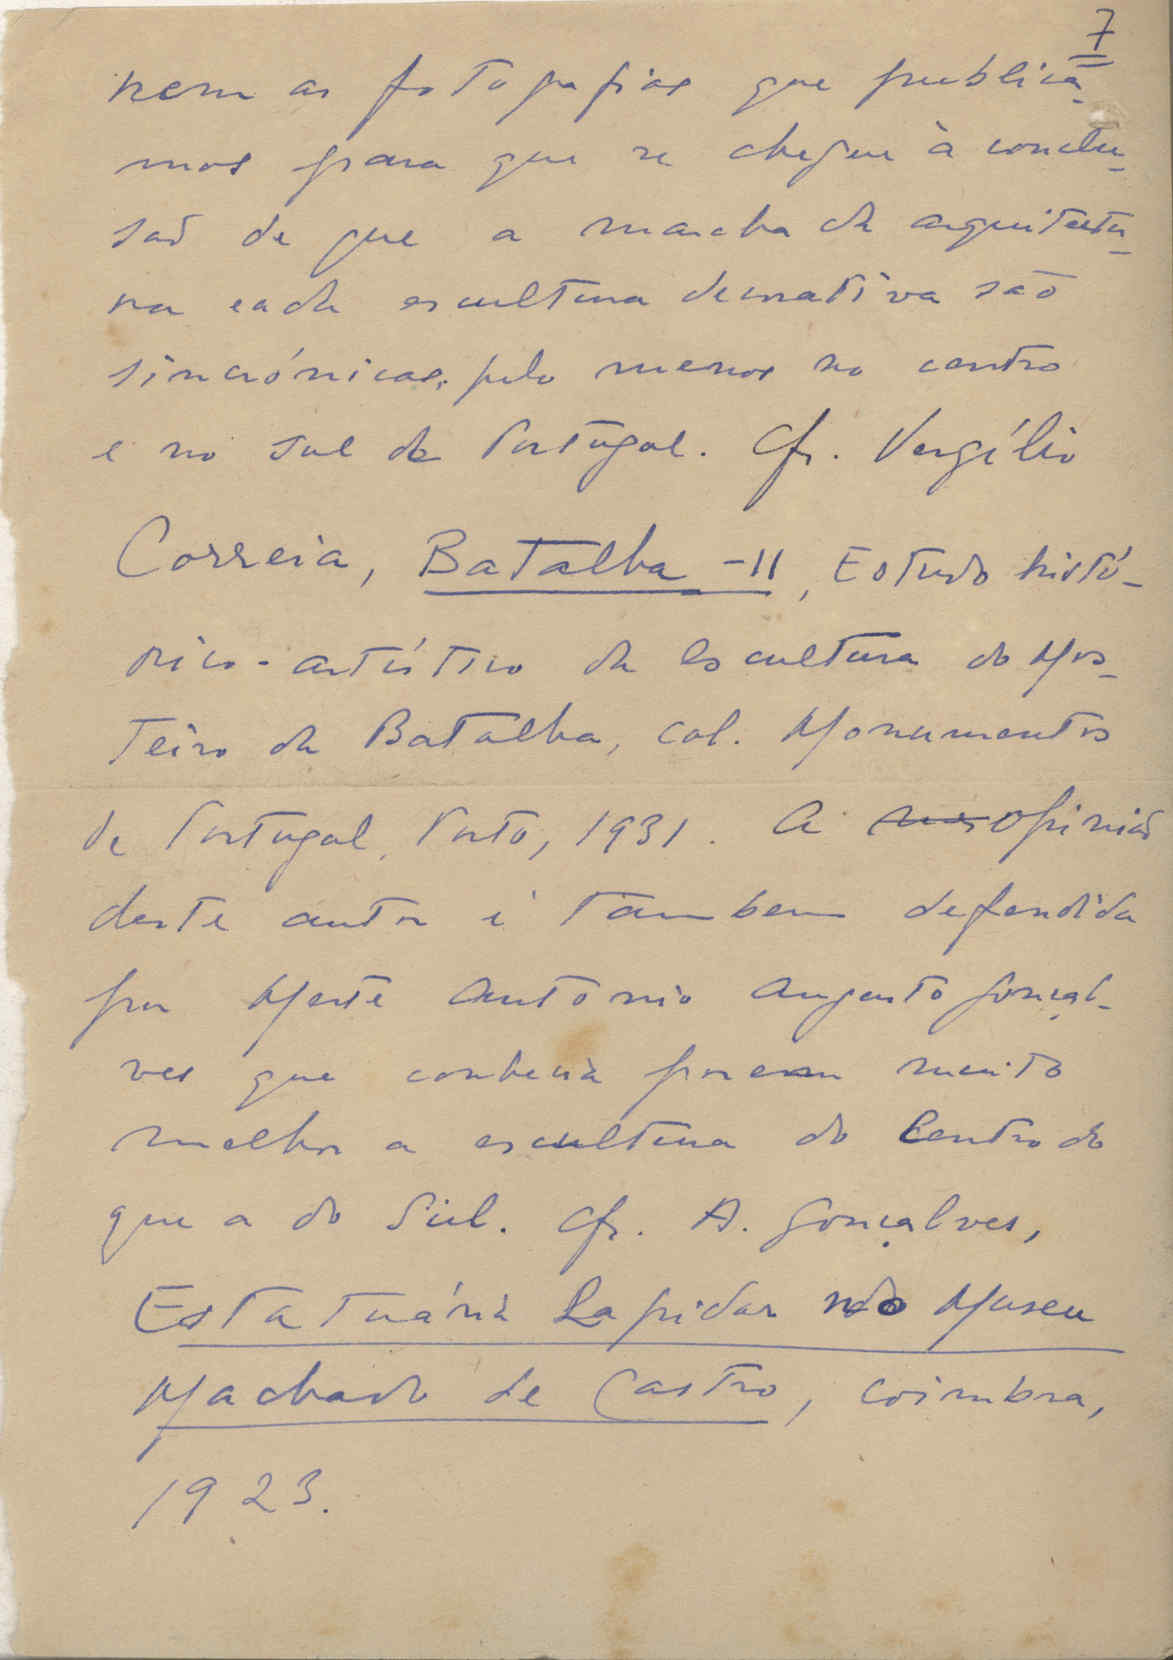 7
nem as fotografias que publica-
mos para que se chegue à conclu-
são de que a marcha da arquitectu-
ra e a da escultura decorativa são
sincrónicas, pelo menos no centro
e no sul de Portugal. Cfr. Vergílio
Correia, Batalha - II, Estudo histó-
rico-artístico da escultura do Mos-
teiro da Batalha, col. Monumentos
de Portugal, Porto, 1931. A opinião
deste autor é tambem defendida
por Mestre António Augusto Gonçal-
ves que conhecia porem muito
melhor a escultura do Centro do
que a do Sul. Cfr. A. Gonçalves,
Estatuária Lapidar no Museu
Machado de Castro, Coimbra,
1923.